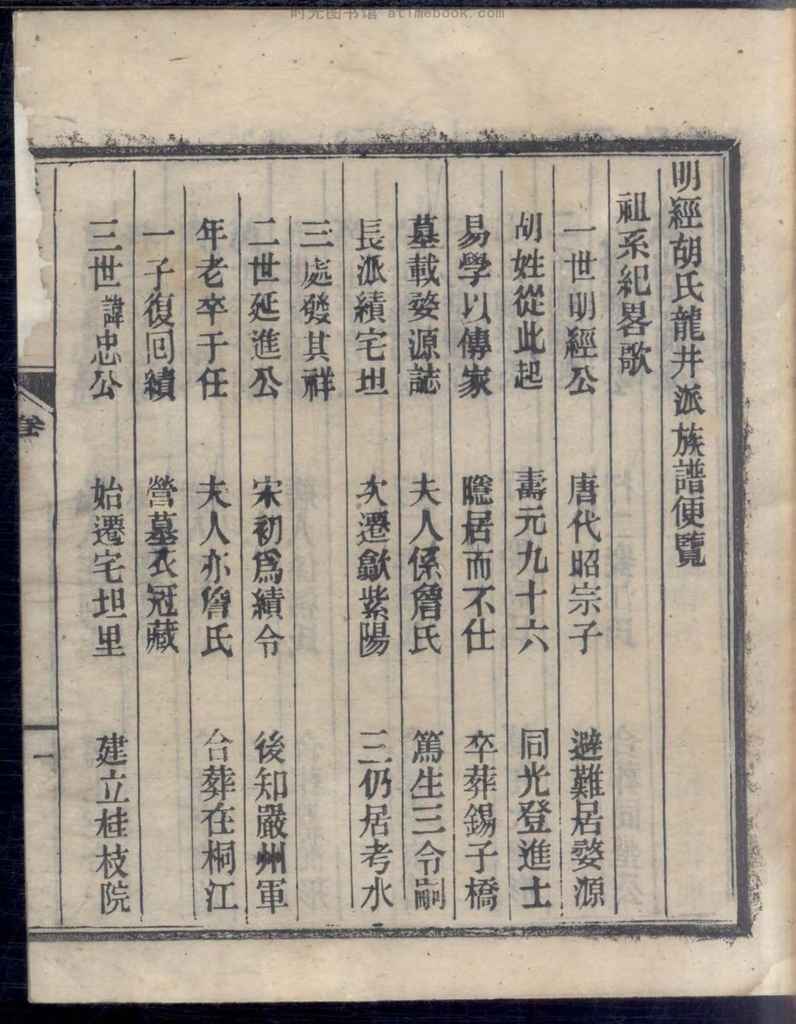 时光图书馆 atimebook.com
明經胡氏龍井派族譜便覽
祖系紀畧歌
一世明經公 唐代昭宗子 避難居婺源
胡姓從此起 壽元九十六 同光登進士
易學以傳家 隱居而不仕 卒葬錫子橋
墓載婺源誌 夫人係詹氏 篤生三令嗣
長派績宅坦 次遷歙紫陽 三仍居考水
三處發其祥
二世延進公 宋初爲績令 後知嚴州軍
年老卒于任 夫人亦詹氏 合葬在桐江
一子復回績 營墓衣冠藏
三世諱忠公 始遷宅坦里 建立桂枝院
卷
一